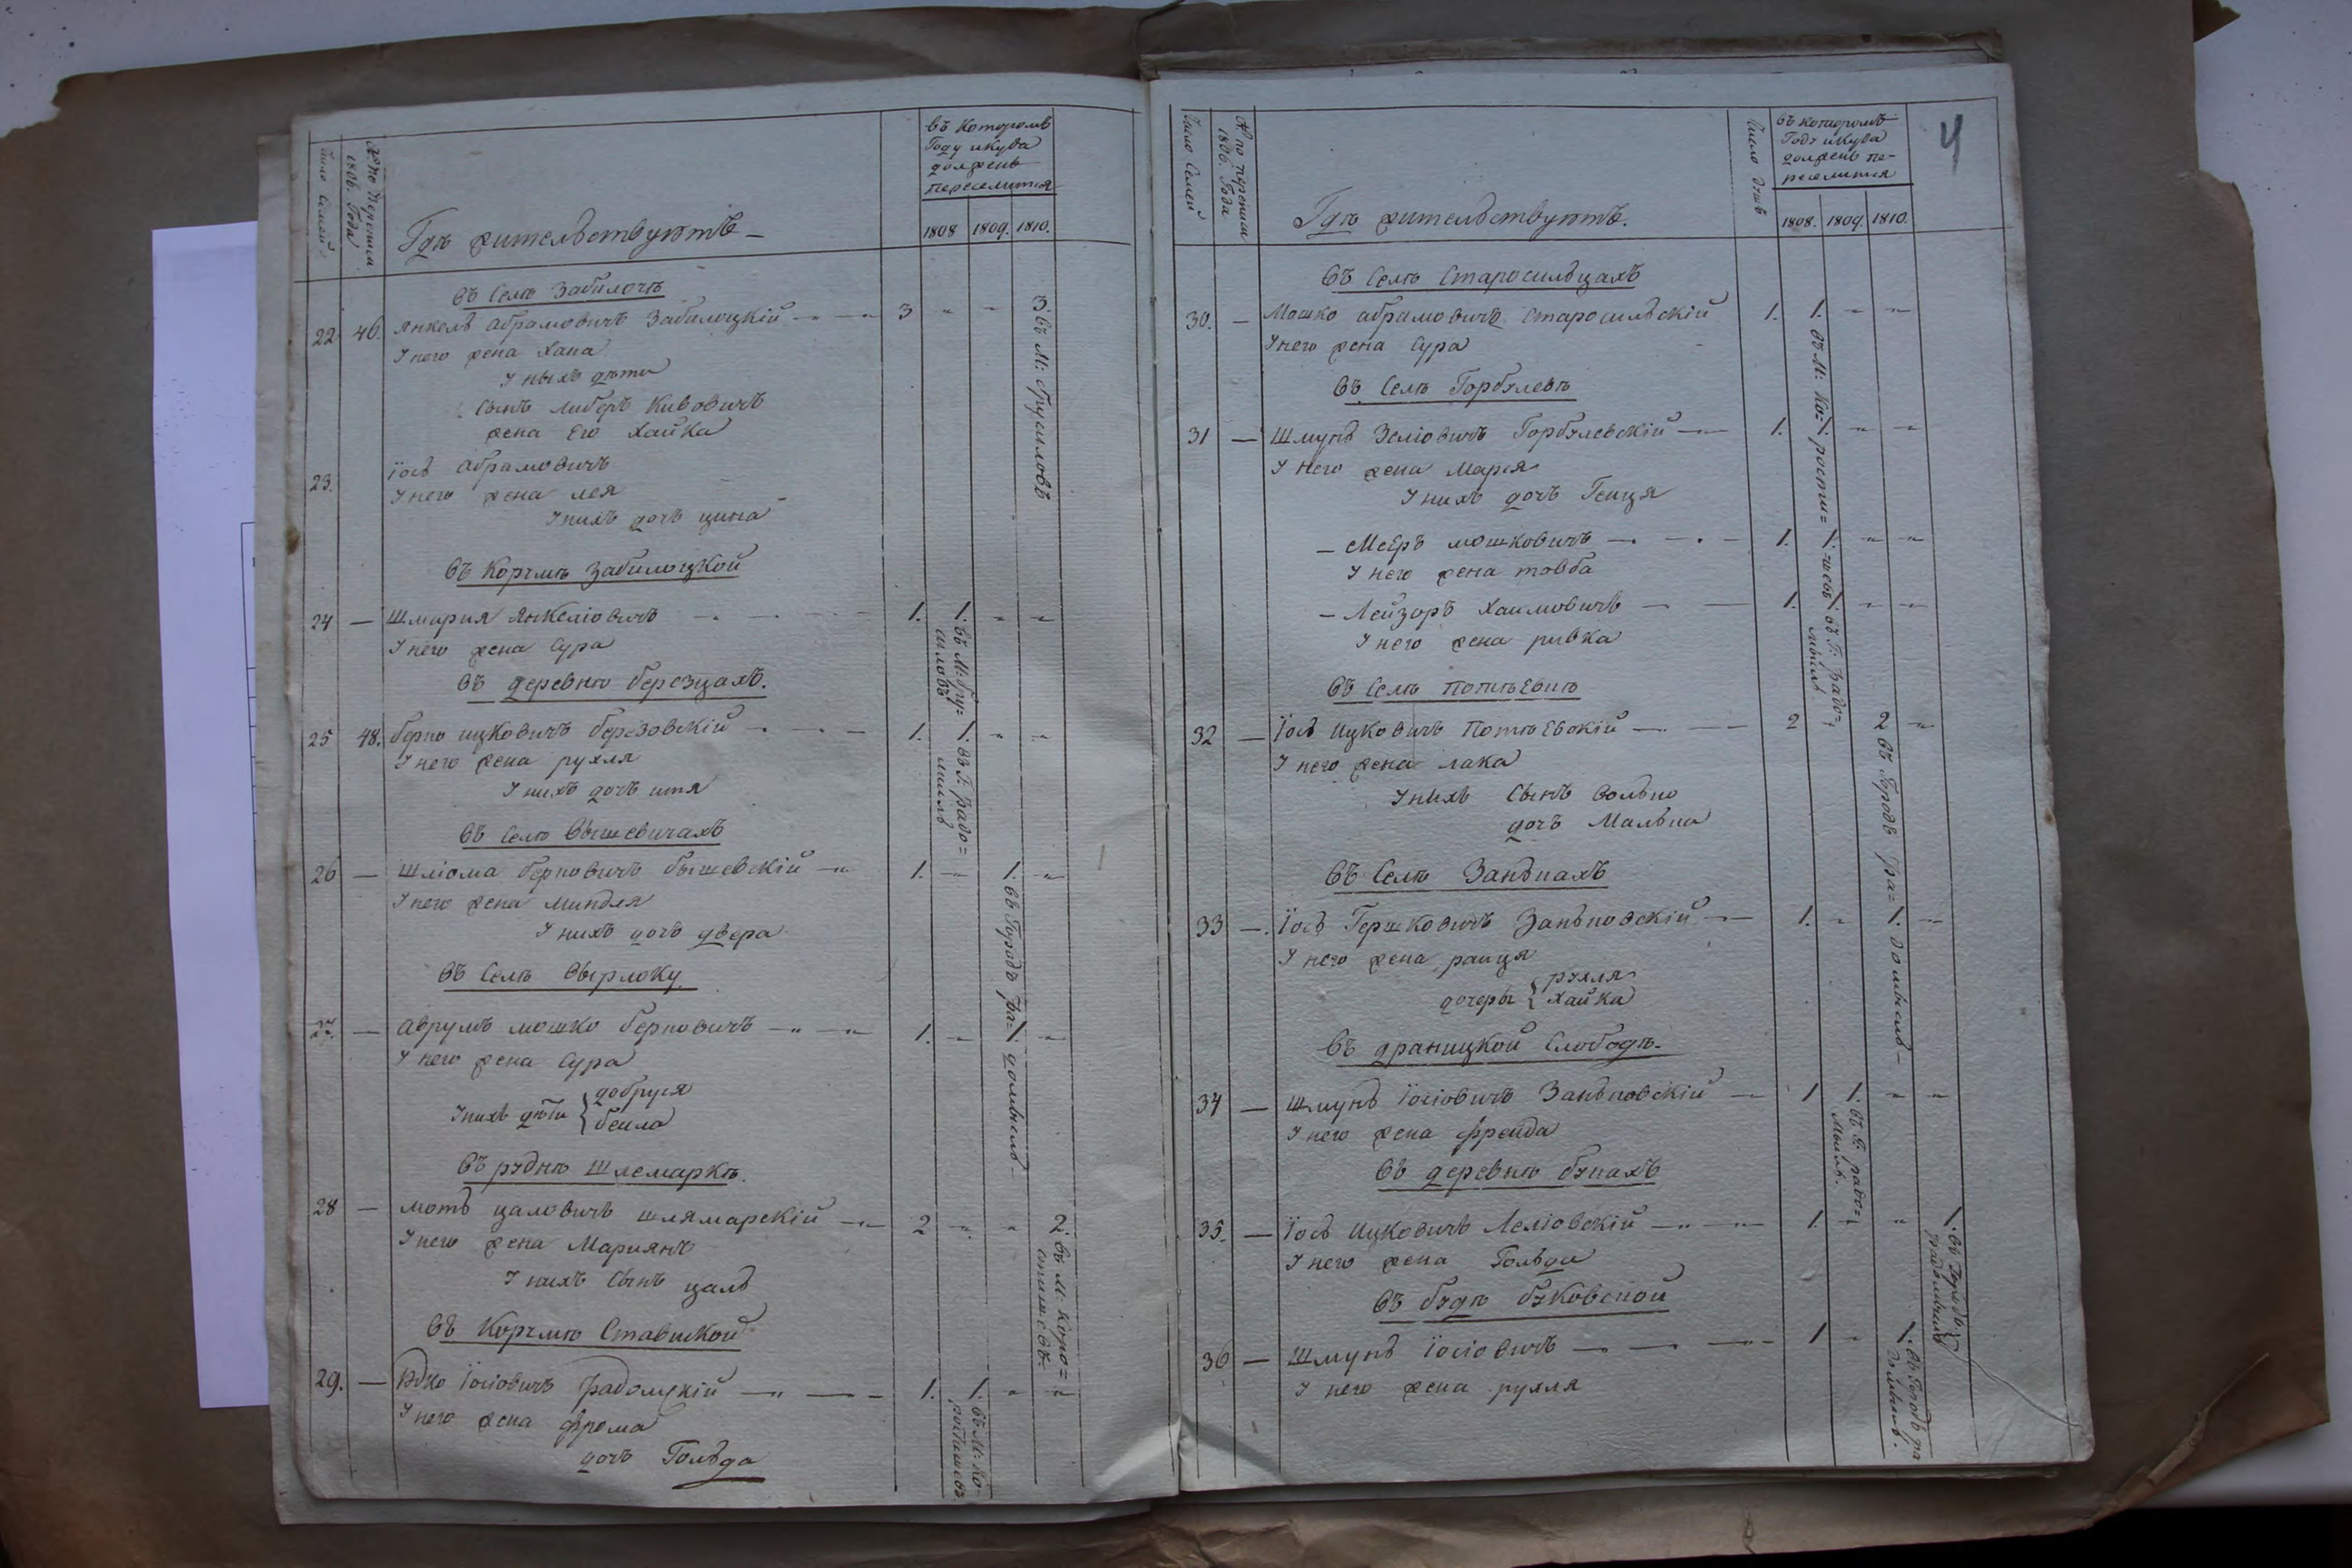 Число Семей
№ по Переписи 1806. Года
Гдѣ жительствуютъ
въ Которомъ
Году икуда
долженъ
переселится
1808 1809. 1810.
Въ Селѣ Забилочѣ
22 46. Янкель Абрамовичъ Забилоцкій 3 3. въ М: Брусиловъ
Унего жена Хана
У ныхъ дѣти
Сынъ Либеръ Кивовичъ
жена Его Хайка
23. Iось Абрамовичъ
Унего жена Лея
Унихъ дочъ цына
Въ Корчмѣ Забилоцкой
24 — Шмария Янкеліовичъ 1. 1. въ М: Бру=
силовъ
Унего жена Сура
Въ деревнѣ Березцахъ.
25 48. Берко ицковичъ Березовскій 1. 1. въ Г: Радо=
мисль
Унего жена рухля
Унихъ дочъ итя
Въ Селѣ Вышевичахъ
26 — Шліома Берковичъ Вышевскій 1. 1. въ Городъ Ра=
Унего жена миндля
Унихъ дочъ двера
Въ Селѣ Вырлоку
27. — Аврумъ мошко Берковичъ 1. 1. домысль
У него жена Сура
Унихъ дѣти { добруся
бейла
Въ руднѣ Шлемаркѣ.
28 — Моть цаловичъ шлямарскій 2 2. въ М: Коро=
стишевъ
Унего жена Мариянъ
Унихъ Сынъ цаль
Въ Корчмѣ Ставиской
29. — Юдко Iосіовичъ Радомскій 1. 1. въ М: Ко=
ростишевъ
Унего жена фрома
дочъ Гольда
4
Число Семей
№ по переписи 1806. Года
Гдѣ жительствуютъ.
Число душъ
въ которомъ
Году икуда
долженъ пе-
реселится
1808. 1809. 1810.
Въ Селѣ Старосильцахъ
30. — Мошко Абрамовичъ Старосильскій 1. 1. въ М: Ко=
Унего жена Сура
Въ Селѣ Горбулевѣ
31 — Шмунь Зеліовичъ Горбулевскій 1. 1. рости=
У него жена Марья
Унихъ дочъ Геиця
— Мееръ мошковичъ 1. 1. шевъ
У него жена товба
— Лейзоръ Хаимовичъ 1. 1. въ Г: Радо=
мысль
Унего жена ривка
Въ Селѣ Потіевкѣ
32 — Iось Ицковичъ Потіевскій 2 2. въ Городъ Ра=
Унего жена лака
Унихъ Сынъ Волько
дочъ Малька
Въ Селѣ Занькахъ
33 — Iось Гершковичъ Заньковскій 1. 1. домысль
Унего жена раиця
дочеры { рухля
Хайка
Въ драницкой Слободѣ.
34 — Шмунь Iосіовичъ Заньковскій 1 1. въ Г: Радо=
мысль.
Унего жена фрейда
Въ деревнѣ букахъ
35. — Iось Ицковичъ Леліовскій 1. 1. въ Городъ
Радомысль
Унего жена Гольди
Въ будѣ буковской
36 — Шмунь Iосіовичъ 1 1. въ Городъ Ра
домысль.
У него жена рухля